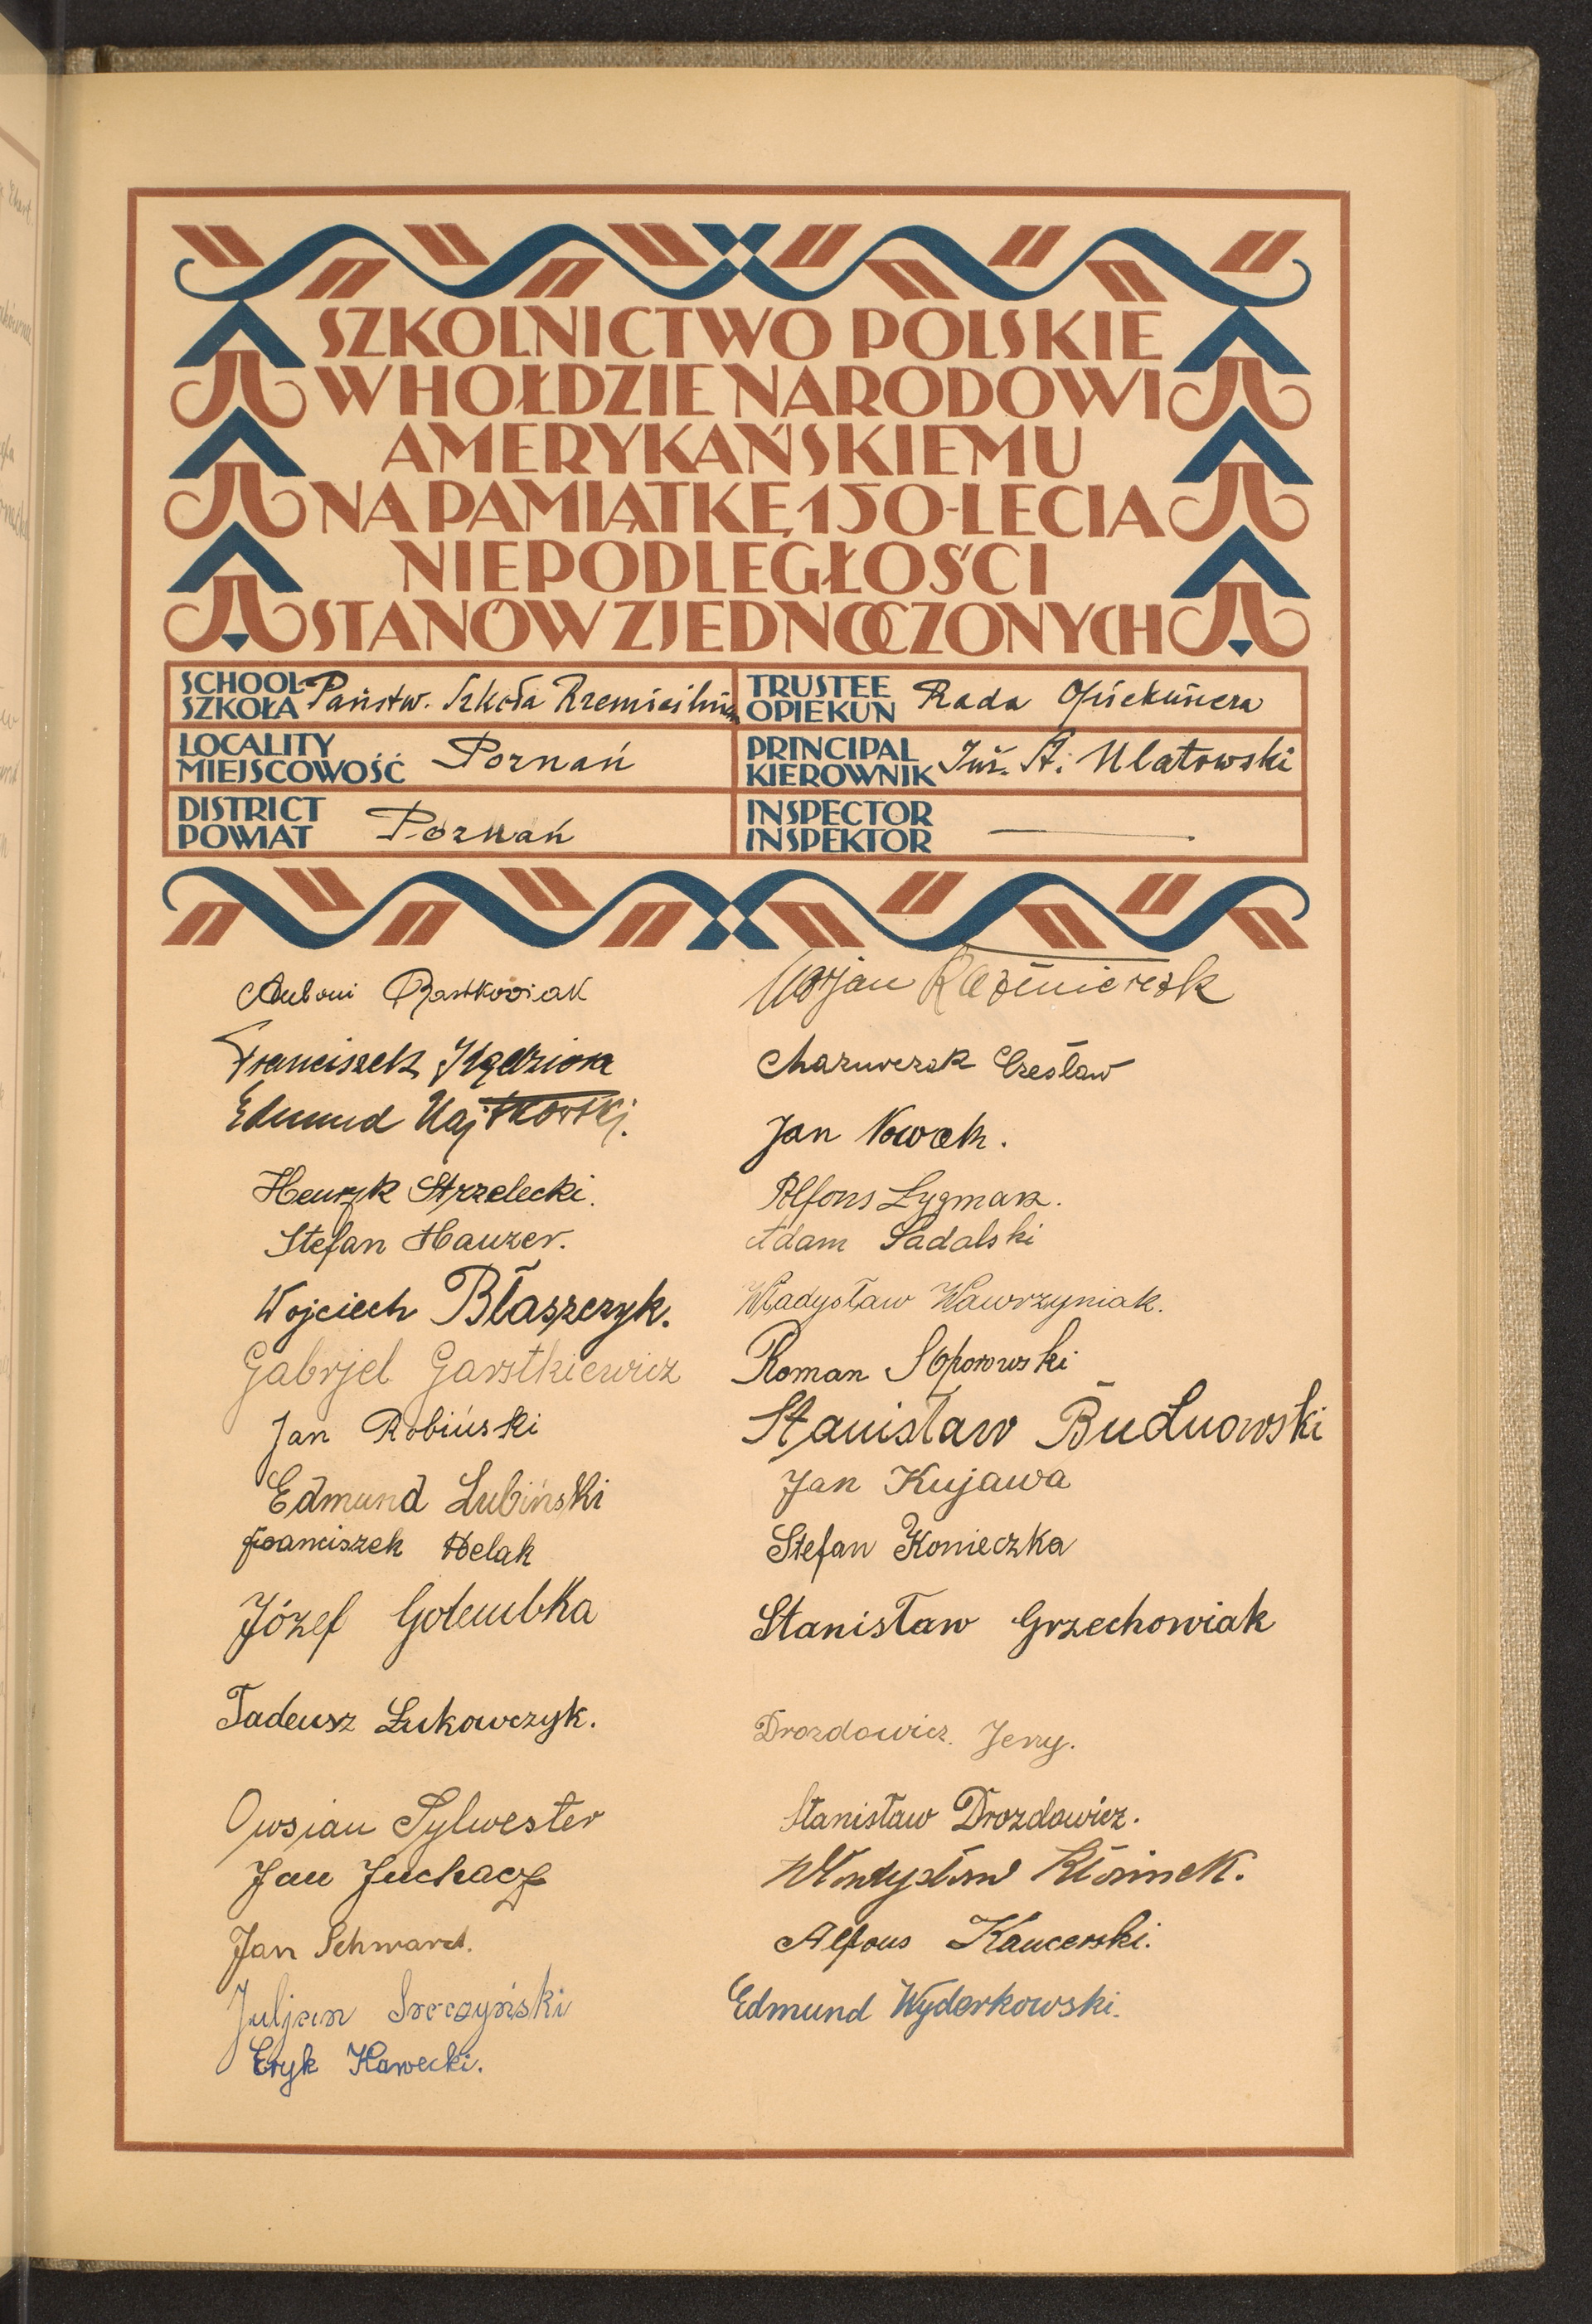 SZKOLNICTWO POLSKIE
W HOŁDZIE NARODOWI
AMERYKAŃSKIEMU
NA PAMIĄTKĘ 150-LECIA
NIEPODLEGŁOŚCI
STANÓW ZJEDNOCZONYCH
SCHOOL SZKOŁA Państw. Szkoła Rzemieślnicza
TRUSTEE OPIEKUN Rada Opiekuńcza
LOCALITY MIEJSCOWOŚĆ Poznań
PRINCIPAL KIEROWNIK Inż. St. Ulatowski
DISTRICT POWIAT Poznań
INSPECTOR INSPEKTOR
Antoni Bartkowiak
Franciszek Kędziora
Edmund
Henryk Strzelecki.
Stefan Hauzer.
Wojciech Błaszczyk.
Gabrjel Garstkiewicz
Jan Robiński
Edmund Lubiński
Franciszek Helak
Józef Gołembka
Tadeusz Łukowczyk.
Owsian Sylwester
Jan Juchacz
Jan Schwarz.
Juljan
Eryk Kawecki.
Marjan Kaźmierczak
Mazurczak Czesław
Jan Nowak.
Alfons Zygman.
Adam Sadalski
Władysław Wawrzyniak.
Roman Soporowski
Stanisław Budnowski
Jan Kujawa
Stefan Konieczka
Stanisław Grzechowiak
Drozdowicz Jerzy.
Stanisław Drozdowicz.
Władysław
Alfons Kancerski.
Edmund Wyderkowski.